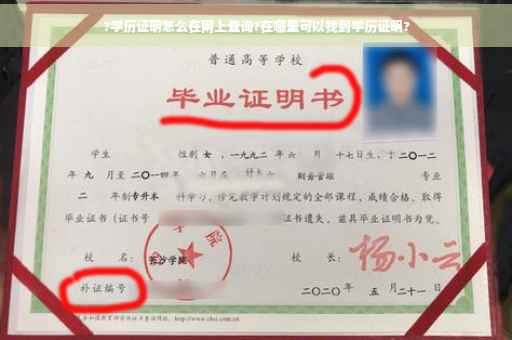 ?学历证明怎么在网上查询?在哪里可以找到学历证明?
普通高等学校
毕业证明书
学生 性别 女 ，一九九二 年 六 月 十七日生，于 二〇一二
年 九 月至 二〇一四 年 六月在 财务管理 专业
二 年制 专升本 科学习，修完教学计划规定的全部课程，成绩合格，取得
毕业证书（证书号 证书遗失，兹具毕业证明书为凭。
校 名： 长沙学院 校 长： 杨小云
补证编号 二〇二〇年 五 月二十一日